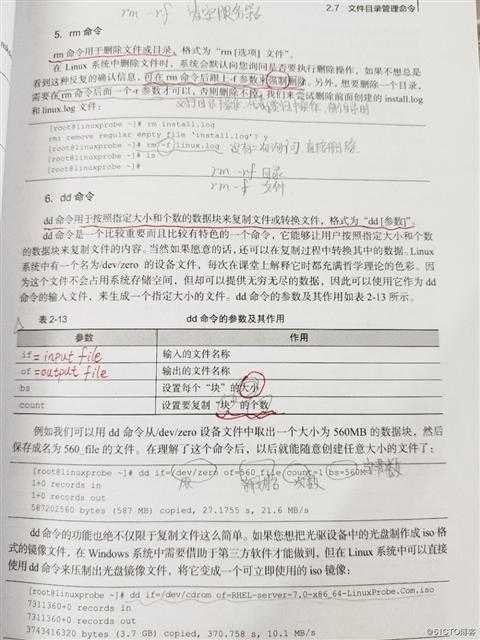 rm -rf 清空服务器
2.7 文件目录管理命令
5. rm 命令
rm 命令用于删除文件或目录，格式为“rm [选项] 文件”。
在 Linux 系统中删除文件时，系统会默认向您询问是否要执行删除操作，如果不想总是
看到这种反复的确认信息，可在 rm 命令后跟上-f 参数来强制删除。另外，想要删除一个目录，
需要在 rm 命令后面一个-r 参数才可以，否则删除不掉。我们来尝试删除前面创建的 install.log
和 linux.log 文件：
[root@linuxprobe ~]# rm install.log
rm: remove regular empty file 'install.log'? y
[root@linuxprobe ~]# rm -f linux.log 没有询问 直接删除
[root@linuxprobe ~]# ls
[root@linuxprobe ~]#
rm -rf 目录
rm -f 文件
6. dd 命令
dd 命令用于按照指定大小和个数的数据块来复制文件或转换文件，格式为“dd [参数]”。
dd 命令是一个比较重要而且比较有特色的一个命令，它能够让用户按照指定大小和个数
的数据块来复制文件的内容。当然如果愿意的话，还可以在复制过程中转换其中的数据。Linux
系统中有一个名为/dev/zero 的设备文件，每次在课堂上解释它时都充满哲学理论的色彩。因
为这个文件不会占用系统存储空间，但却可以提供无穷无尽的数据，因此可以使用它作为 dd
命令的输入文件，来生成一个指定大小的文件。dd 命令的参数及其作用如表 2-13 所示。
表 2-13 dd 命令的参数及其作用
参数 作用
if = input file 输入的文件名称
of = output file 输出的文件名称
bs 设置每个“块”的大小
count 设置要复制“块”的个数
例如我们可以用 dd 命令从/dev/zero 设备文件中取出一个大小为 560MB 的数据块，然后
保存成名为 560_file 的文件。在理解了这个命令后，以后就能随意创建任意大小的文件了：
[root@linuxprobe ~]# dd if=/dev/zero of=560_file count=1 bs=560M
1+0 records in
1+0 records out
587202560 bytes (587 MB) copied, 27.1755 s, 21.6 MB/s
dd 命令的功能也绝不仅限于复制文件这么简单。如果您想把光驱设备中的光盘制作成 iso 格
式的镜像文件，在 Windows 系统中需要借助于第三方软件才能做到，但在 Linux 系统中可以直接
使用 dd 命令来压制出光盘镜像文件，将它变成一个可立即使用的 iso 镜像：
[root@linuxprobe ~]# dd if=/dev/cdrom of=RHEL-server-7.0-x86_64-LinuxProbe.Com.iso
7311360+0 records in
7311360+0 records out
3743416320 bytes (3.7 GB) copied, 370.758 s, 10.1 MB/s
@51CTO博客